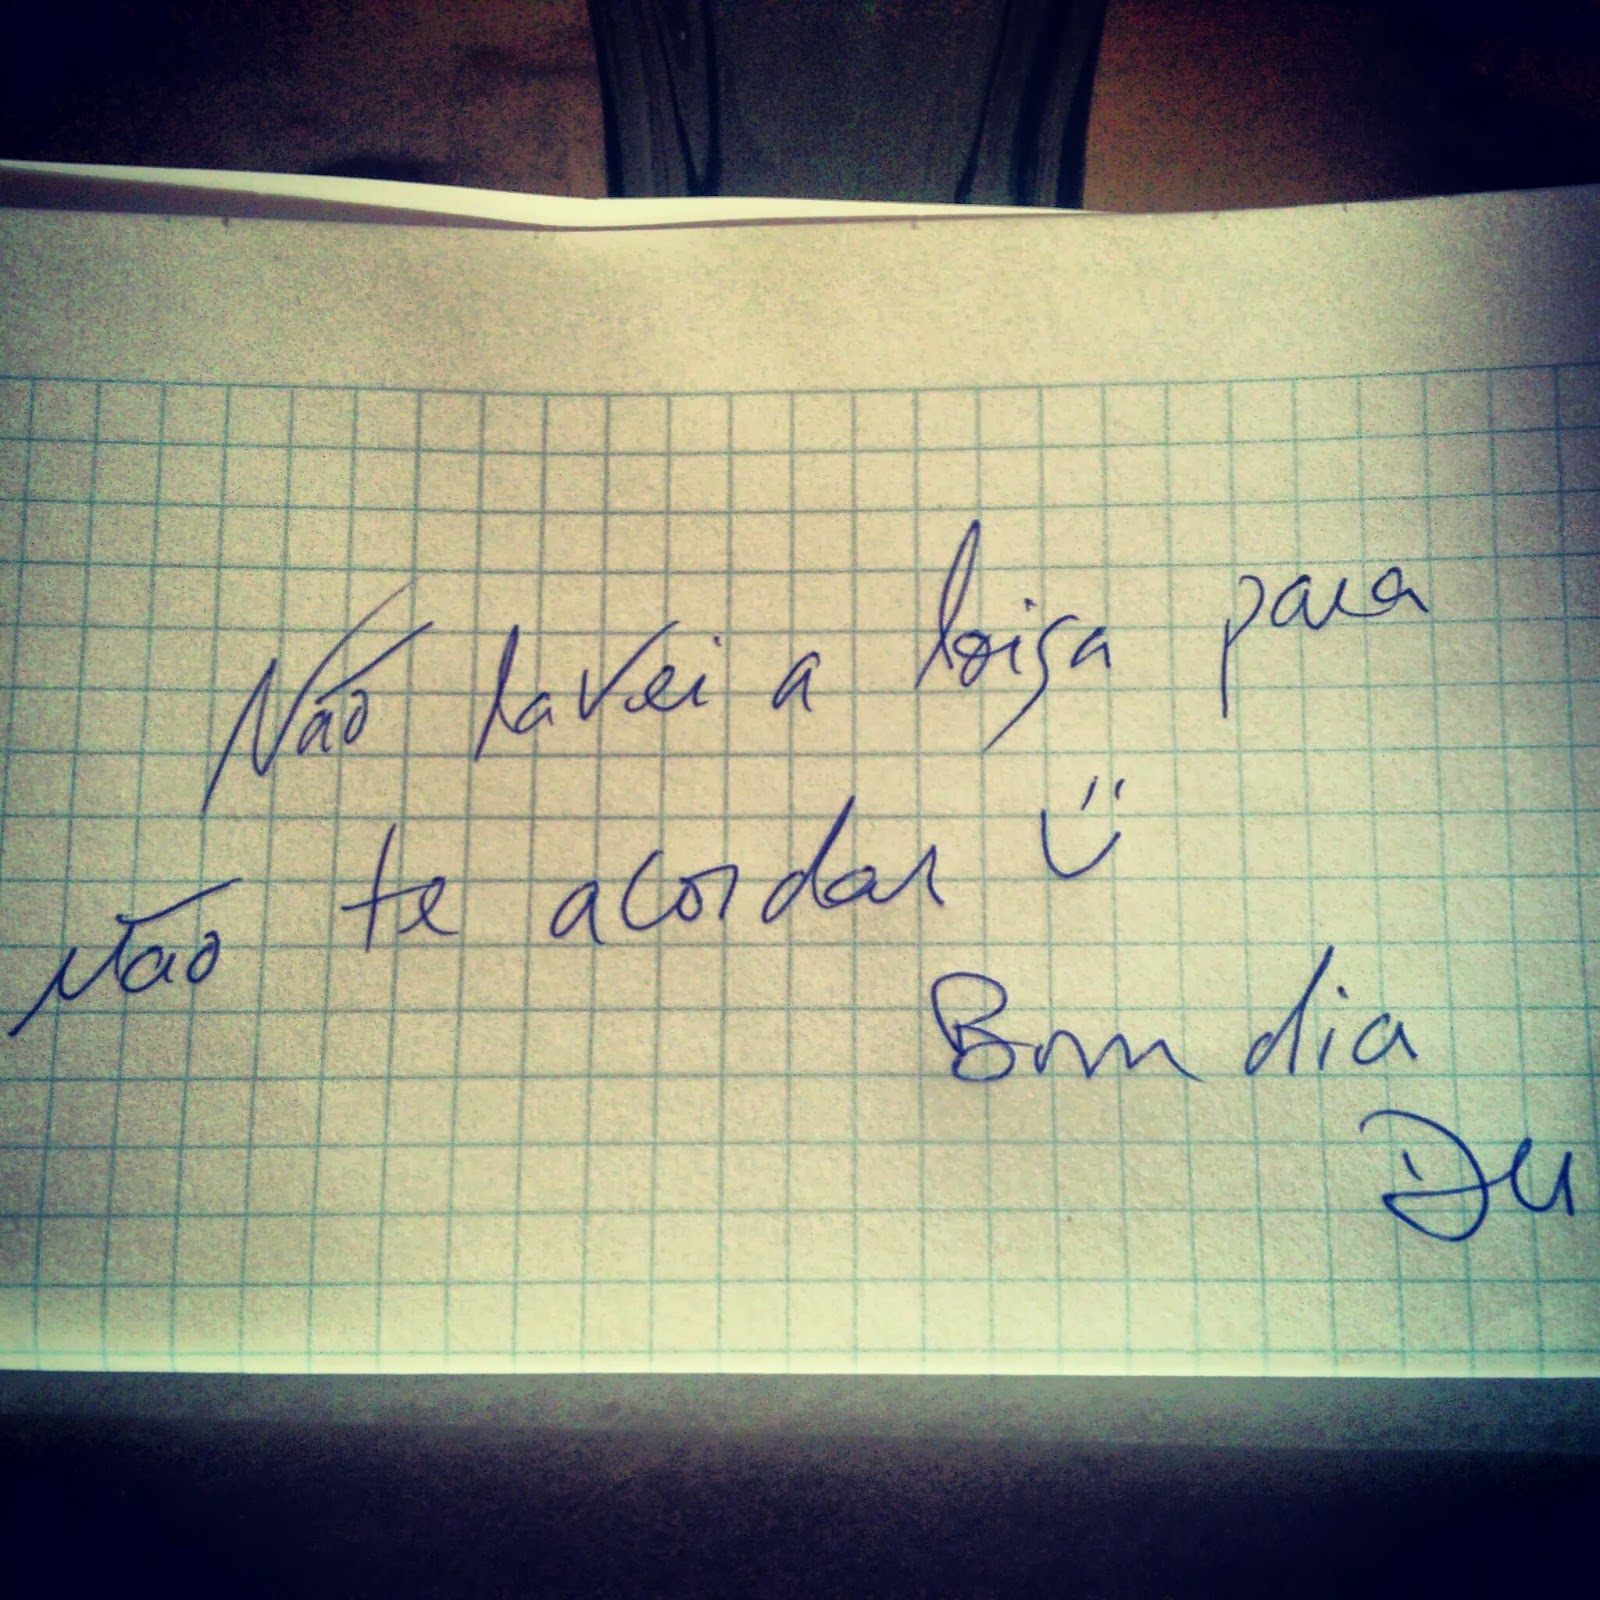 Não lavei a loiça para
não te acordar :)
Bom dia
Du